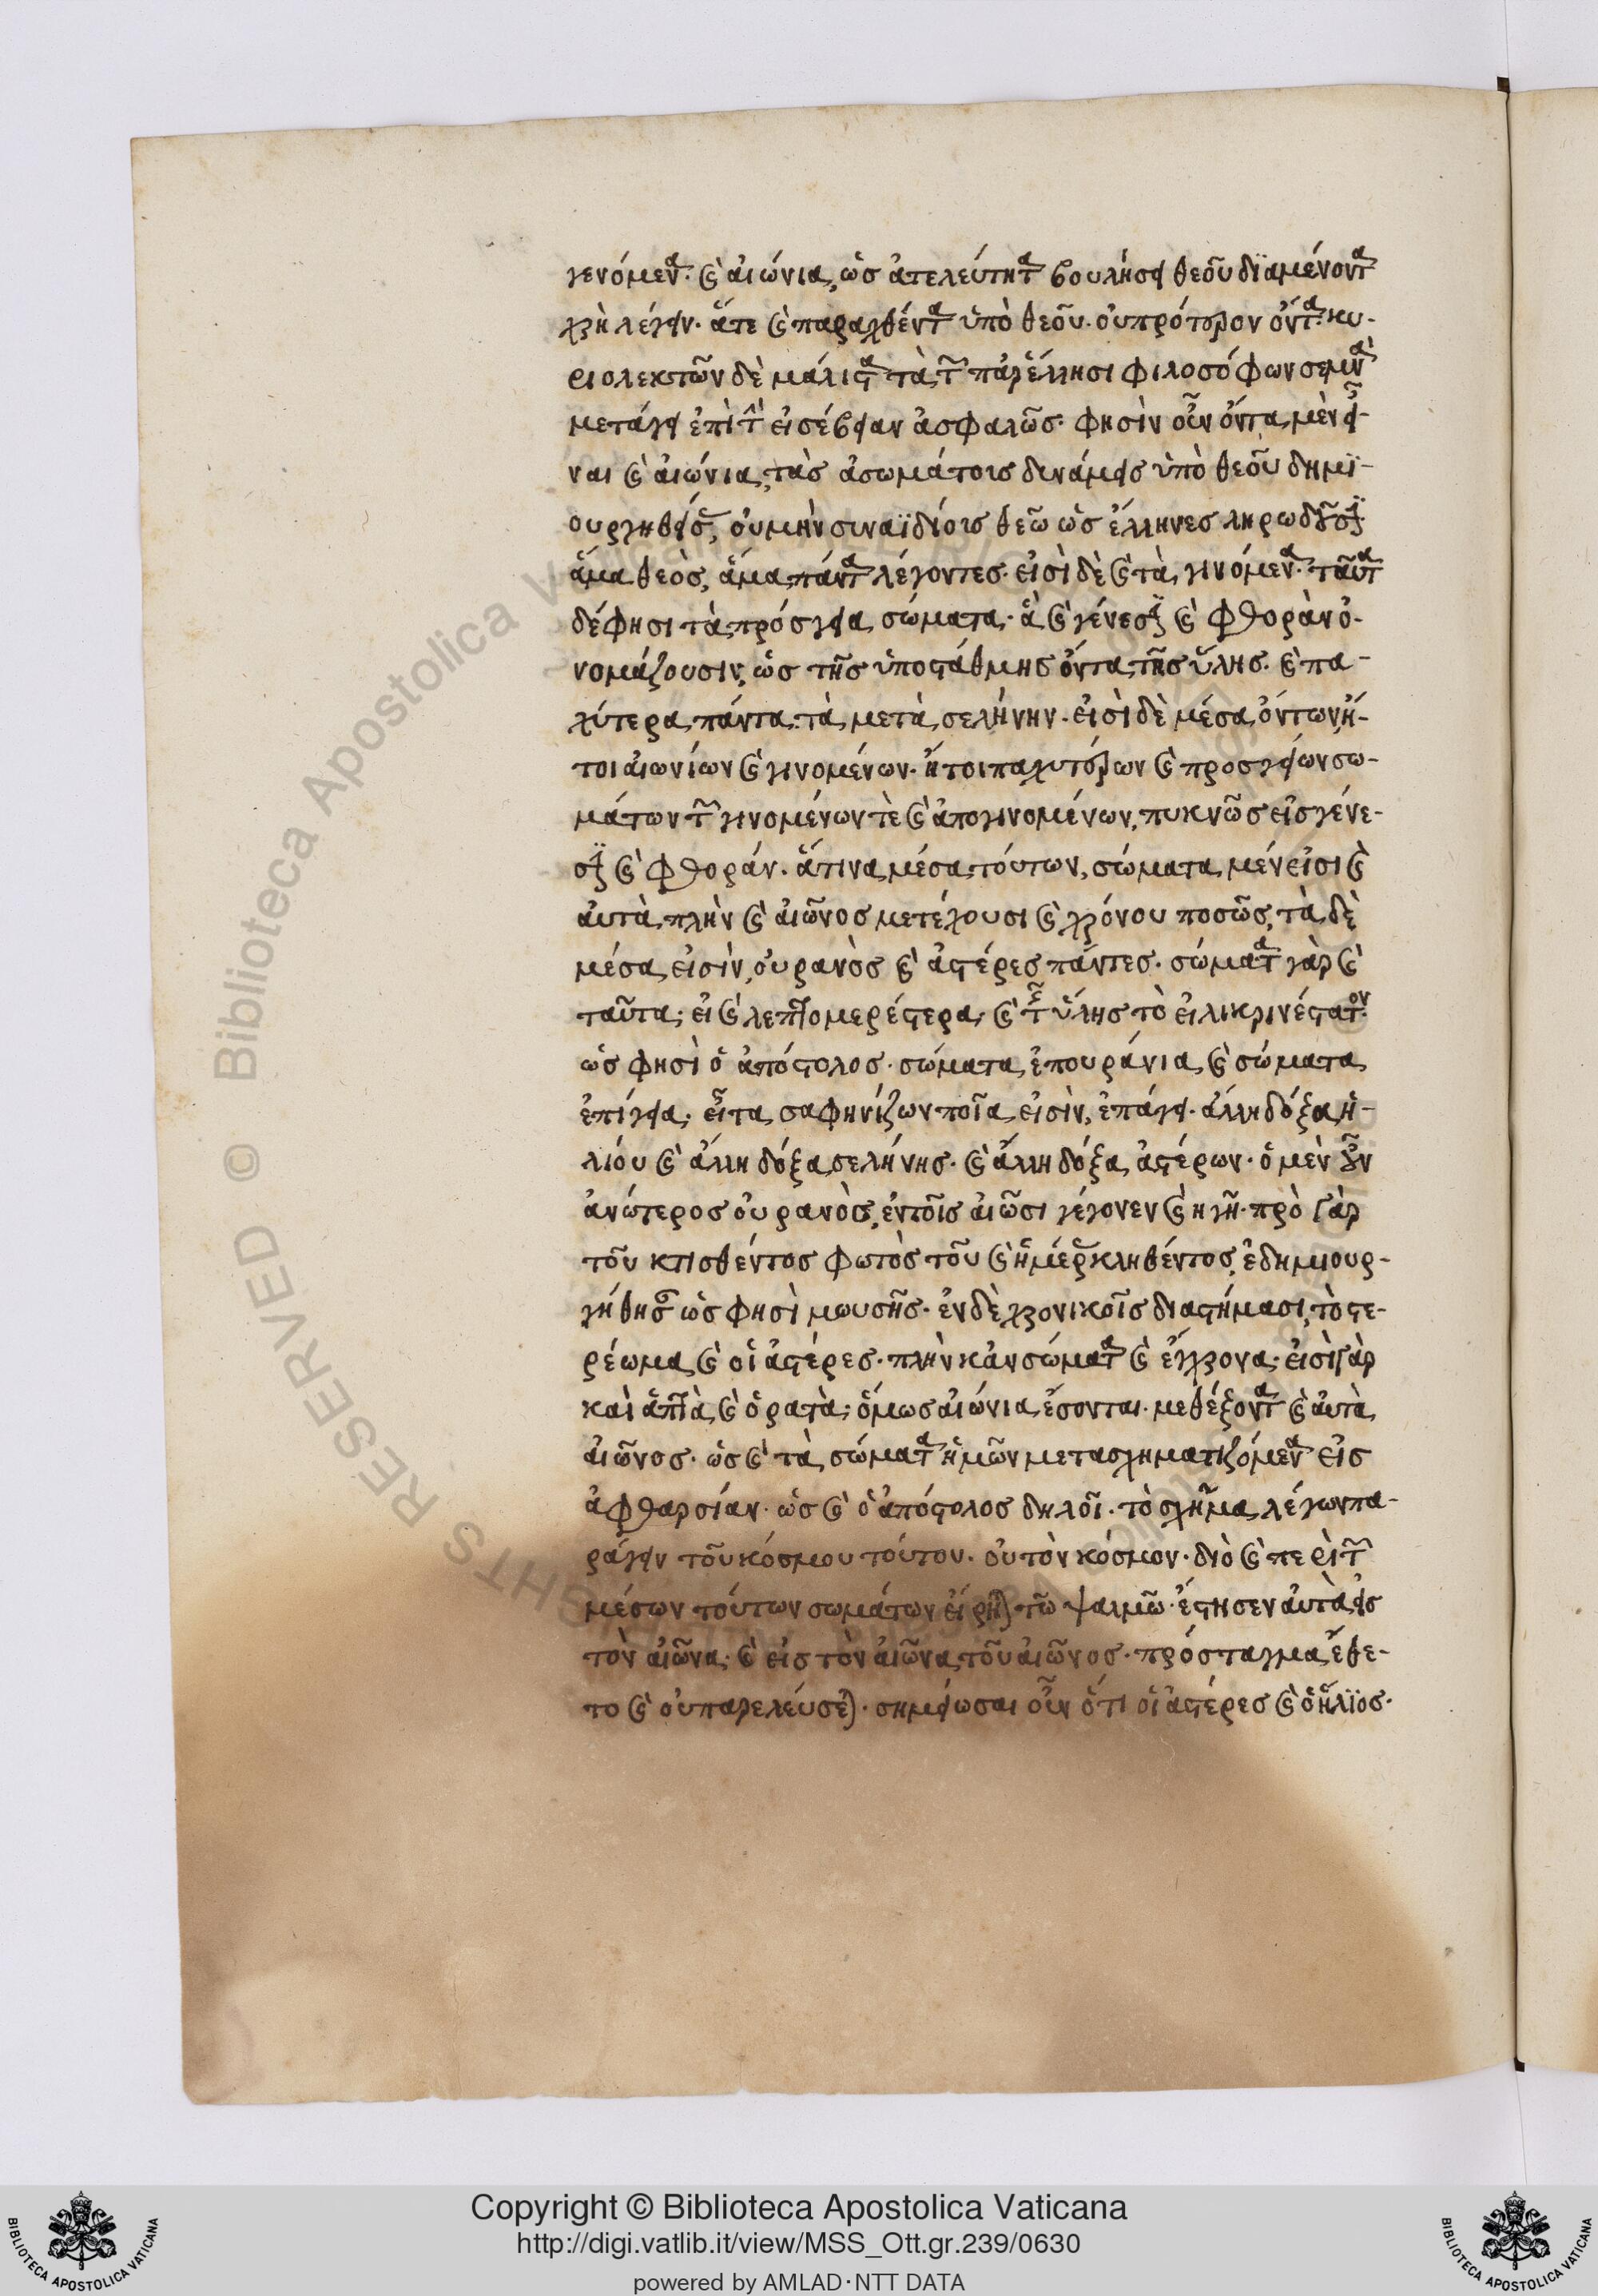 γενόμενα. καὶ αἰώνια, ὡς ἀτελεύτητα βουλήσει θεοῦ διαμένοντα
χρὴ λέγειν. ἅτε καὶ παραχθέντα ὑπὸ θεοῦ. οὐ πρότερον ὄντα. κυ-
ριολεκτῶν δὲ μάλιστα τὰ τῶν παρ' ἕλλησι φιλοσόφων σεμνὰ
μετάγει ἐπὶ τὴν εὐσέβειαν ἀσφαλῶς. φησὶν οὖν ὄντα μὲν εἶ-
ναι καὶ αἰώνια, τὰς ἀσωμάτους δυνάμεις ὑπὸ θεοῦ δημι-
ουργηθείσας, οὐ μὴν συναϊδίους θεῶ ὡς ἕλληνες ληρωδοῦσιν.
ἅμα θεὸς, ἅμα πάντα λέγοντες. εἰσὶ δὲ καὶ τὰ γινόμενα. ταῦτα
δέ φησι τὰ πρόσγεια σώματα. ἃ καὶ γένεσιν καὶ φθορὰν ὀ-
νομάζουσιν, ὡς τῆς ὑποστάθμης ὄντα τῆς ὕλης. καὶ πα-
χύτερα πάντα τὰ μετὰ σελήνην. εἰσὶ δὲ μέσα ὄντων, ἤ-
τοι αἰωνίων καὶ γινομένων. ἤτοι παχυτέρων καὶ προσγείων σω-
μάτων τῶν γινομένων τὲ καὶ ἀπογινομένων, πυκνῶς εἰς γένε-
σιν καὶ φθοράν. ἅτινα μέσα τούτων, σώματα μέν εἰσι καὶ
αὐτὰ, πλὴν καὶ αἰῶνος μετέχουσι καὶ χρόνου ποσῶς, τὰ δὲ
μέσα εἰσὶν, οὐρανὸς καὶ ἀστέρες πάντες. σώματα γὰρ καὶ
ταῦτα; εἰ καὶ λεπτομερέστερα; καὶ τῆς ὕλης τὸ εἰλικρινέστατον.
ὡς φησὶ ὁ ἀπόστολος. σώματα ἐπουράνια, καὶ σώματα
ἐπίγεια; εἶτα σαφηνίζων ποῖα εἰσὶν, ἐπάγει. ἄλλη δόξα ἡ-
λίου καὶ ἄλλη δόξα σελήνης. καὶ ἄλλη δόξα ἀστέρων. ὁ μὲν οὖν
ἀνώτερος οὐρανὸς, ἐν τοῖς αἰῶσι γέγονεν καὶ ἡ γῆ. πρὸ γὰρ
τοῦ κτισθέντος φωτὸς τοῦ καὶ ἡμέρας κληθέντος, ἐδημιουρ-
γήθησαν ὡς φησὶ μωυσῆς. ἐν δὲ χρονικοῖς διαστήμασι, τὸ στε-
ρέωμα καὶ οἱ ἀστέρες. πλὴν κἂν σώματα καὶ ἔγχρονα; εἰσὶ γὰρ
καὶ ἁπτὰ, καὶ ὁρατὰ; ὅμως αἰώνια ἔσονται. μεθέξοντα καὶ αὐτὰ
αἰῶνος. ὡς καὶ τὰ σώματα ἡμῶν μετασχηματιζόμενα εἰς
ἀφθαρσίαν. ὡς καὶ ὁ ἀπόστολος δηλοῖ. τὸ σχῆμα λέγων πα-
ράγειν τοῦ κόσμου τούτου. οὐ τὸν κόσμον. διὸ καὶ περὶ τῶν
μέσων τούτων σωμάτων εἴρηται τῶ ψαλμῶ. ἔστησεν αὐτὰ εἰς
τὸν αἰῶνα; καὶ εἰς τὸν αἰῶνα τοῦ αἰῶνος. πρόσταγμα ἔθε-
το καὶ οὐ παρελεύσεται. σημείωσαι οὖν ὅτι οἱ ἀστέρες καὶ ὁ ἥλιος.
Copyright © Biblioteca Apostolica Vaticana
http://digi.vatlib.it/view/MSS_Ott.gr.239/0630
powered by AMLAD·NTT DATA